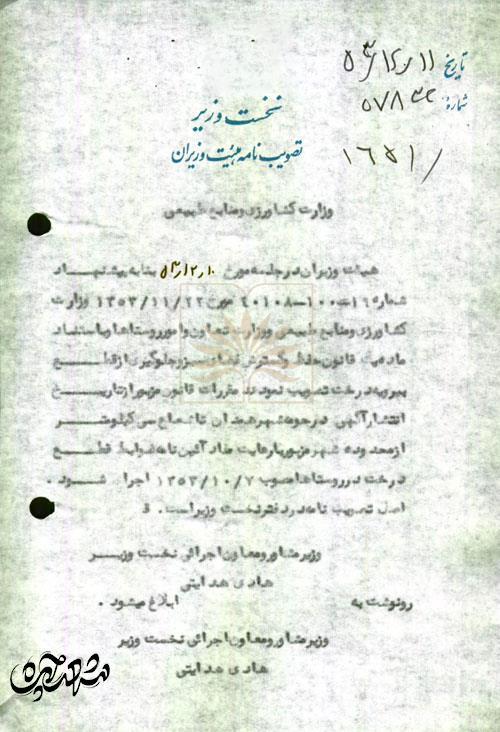 تاریخ ۱۱ر۱۲ر۵۳
شماره ۵۷۸۳۲
نخست وزیر
تصویب نامه هیئت وزیران
وزارت کشاورزی و منابع طبیعی
هیئت وزیران در جلسه مورخ ۱۰ر۱۲ر۵۳ بنا به پیشنهاد
شماره ۱۶ـ۱۰۰ـ۴۰۱۰۸ مورخ ۱۳۵۳/۱۱/۲۲ وزارت
کشاورزی و منابع طبیعی و وزارت تعاون و امور روستاها و باستناد
ماده قانون حفظ و گسترش فضای سبز و جلوگیری از قطع
بیرویه درخت تصویب نمودند مقررات قانون مزبور از تاریخ
انتشار آگهی در حومه شهر همدان تا شعاع سی کیلومتر
از محدوده شهر مزبور با رعایت مفاد آئین نامه ضوابط قطع
درخت در روستاها مصوب ۱۳۵۳/۱۰/۷ اجرا شود .
اصل تصویب نامه در دفتر نخست وزیر است .
وزیر مشاور و معاون اجرائی نخست وزیر
هادی هدایتی
رونوشت به ابلاغ میشود .
وزیر مشاور و معاون اجرائی نخست وزیر
هادی هدایتی